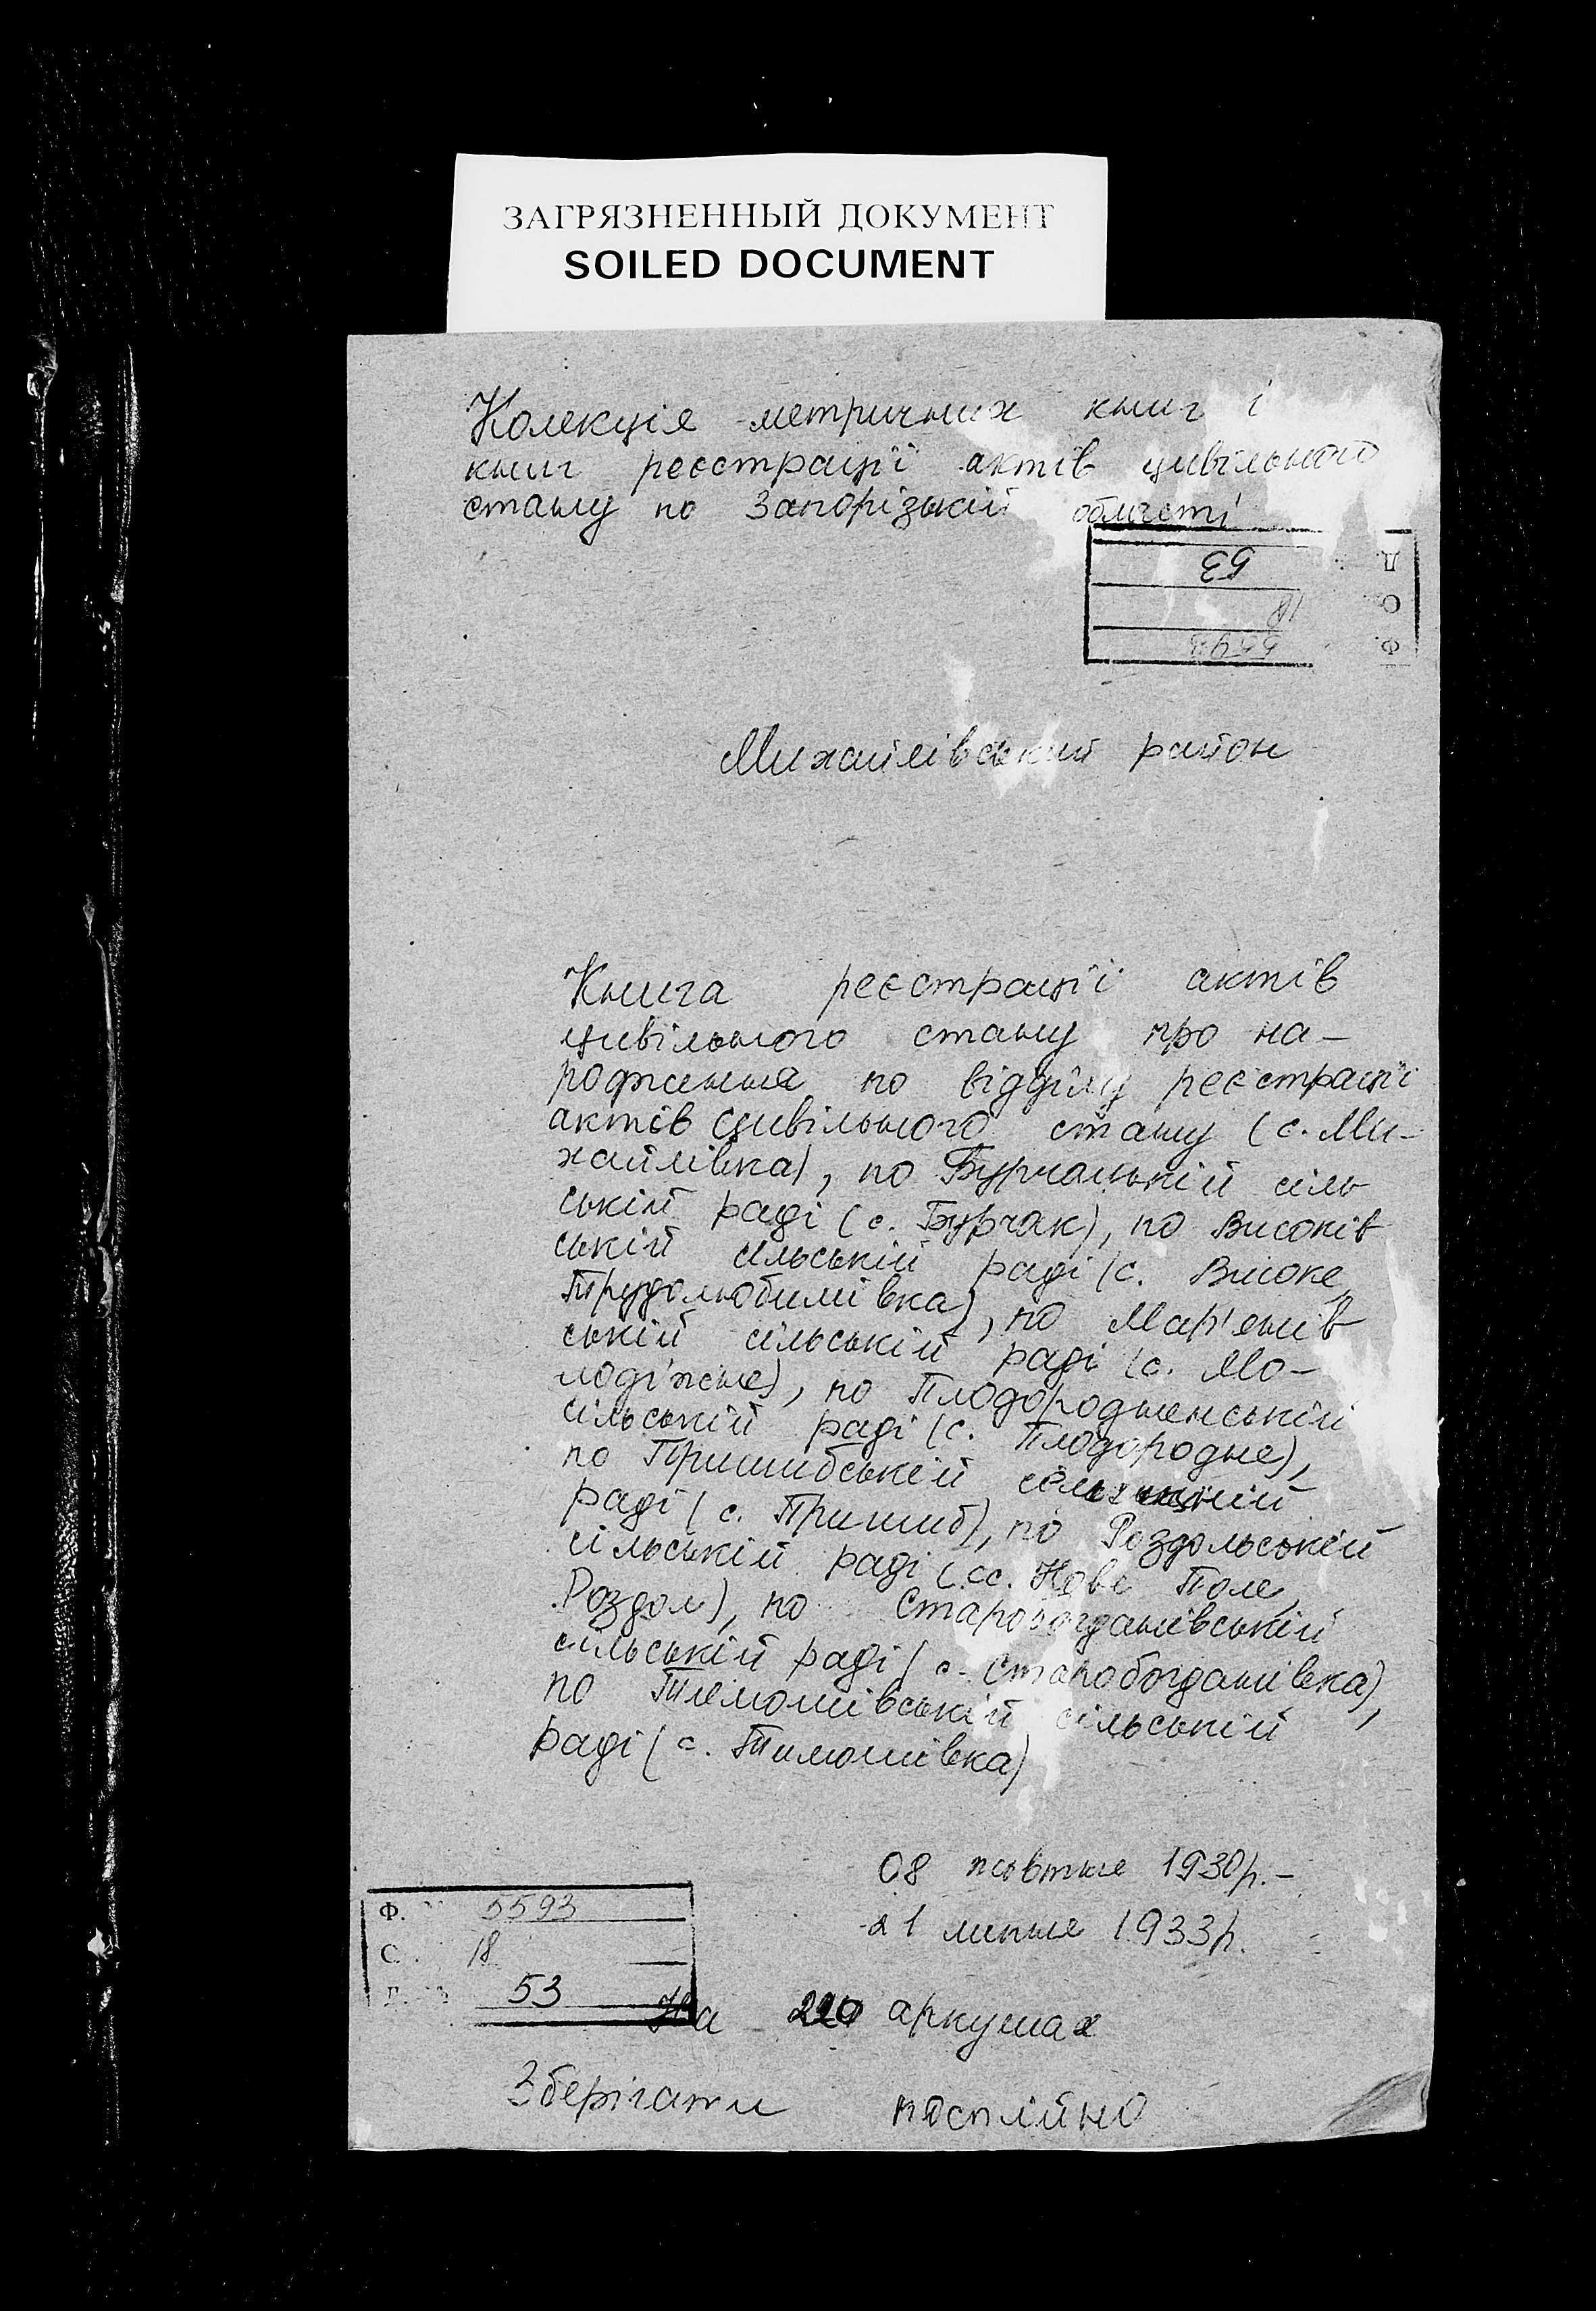 ЗАГРЯЗНЕННЫЙ ДОКУМЕНТ
SOILED DOCUMENT
Колекція метричних книг і
книг реєстрації актів цивільного
стану по Запорізькій області
Д. 53
О. 18
Ф. 5593
Михайлівський район
Книга реєстрації актів
цивільного стану про на-
родження по відділу реєстрації
актів цивільного стану (с. Ми-
хайлівка), по Бурчацькій сіль
ській раді (с. Бурчак), по Високів
ській сільській раді (с. Високе,
Трудолюбимівка), по Мар'янів
ській сільській раді (с. Мо-
лодіжне), по Плодородненській
сільській раді (с. Плодородне),
по Пришибській сільській
раді (с. Пришиб), по Роздольській
сільській раді (сс. Нове Поле,
Роздол), по Старобогданівській
сільській раді (с. Старобогданівка),
по Тимошівській сільській
раді (с. Тимошівка)
08 жовтня 1930р.-
21 липня 1933р.
Ф. 5593
О. 18
Д. 53
На 220 аркушах
Зберігати постійно